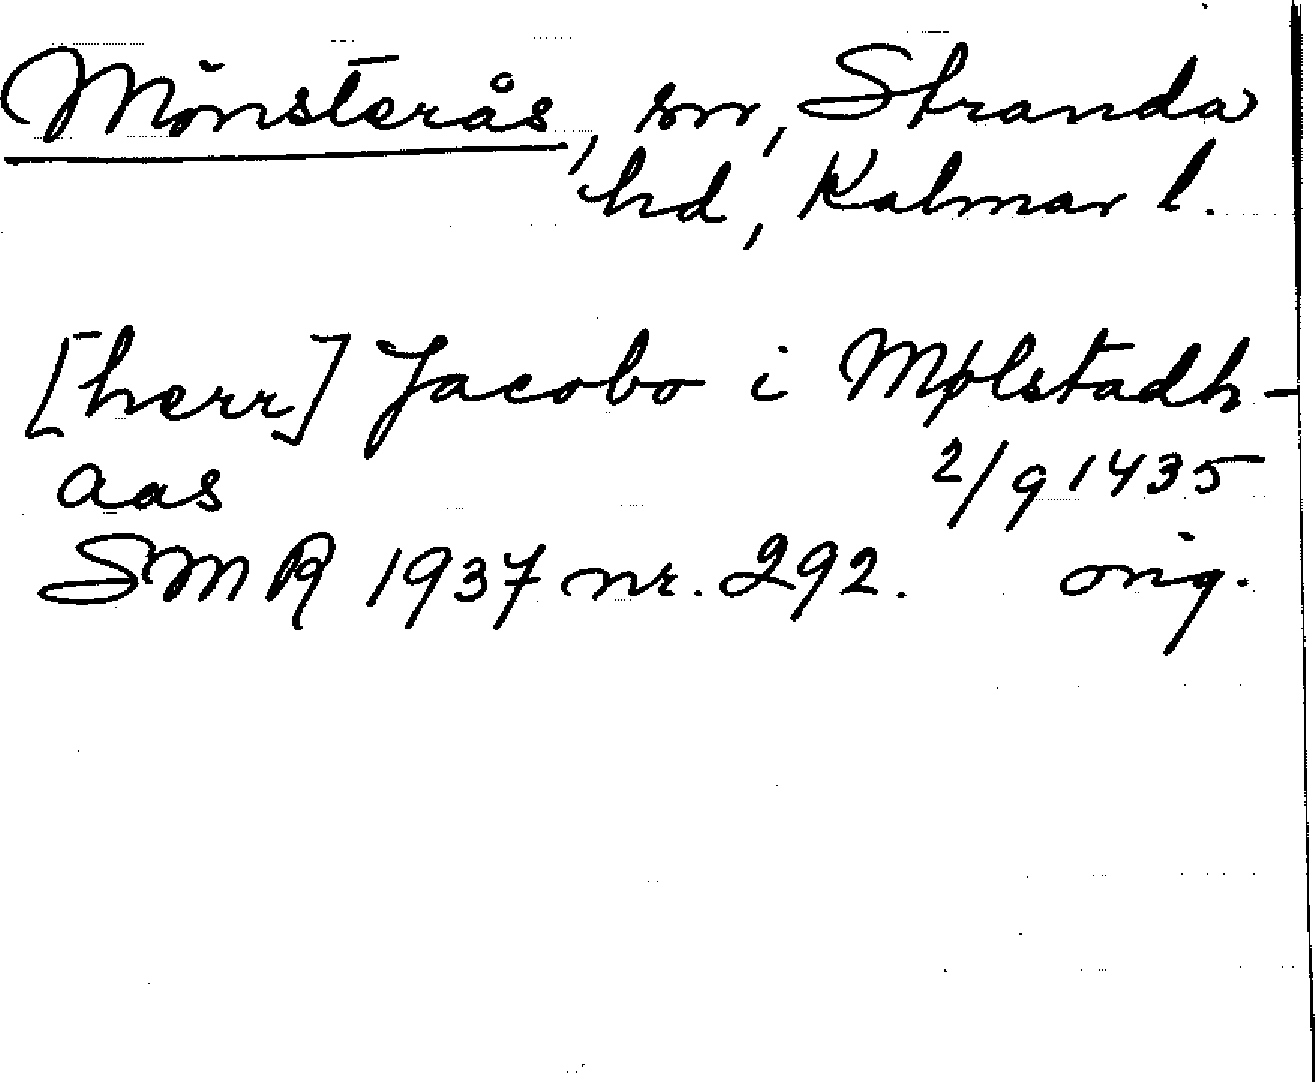 Mönsterås, sn, Stranda
hd, Kalmar l.
[herr] Jacobo i Mølstadh-
aas 2/9 1435
SMR 1937 nr. 292. orig.